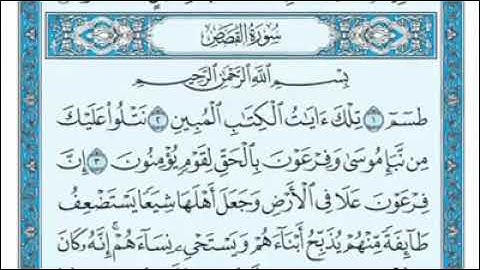 سُورَةُ القَصَصِ
بِسۡمِ ٱللَّهِ ٱلرَّحۡمَٰنِ ٱلرَّحِيمِ
طسٓمٓ ١ تِلۡكَ ءَايَٰتُ ٱلۡكِتَٰبِ ٱلۡمُبِينِ ٢ نَتۡلُواْ عَلَيۡكَ
مِن نَّبَإِ مُوسَىٰ وَفِرۡعَوۡنَ بِٱلۡحَقِّ لِقَوۡمٖ يُؤۡمِنُونَ ٣ إِنَّ
فِرۡعَوۡنَ عَلَا فِي ٱلۡأَرۡضِ وَجَعَلَ أَهۡلَهَا شِيَعٗا يَسۡتَضۡعِفُ
طَآئِفَةٗ مِّنۡهُمۡ يُذَبِّحُ أَبۡنَآءَهُمۡ وَيَسۡتَحۡيِۦ نِسَآءَهُمۡۚ إِنَّهُۥ كَانَ